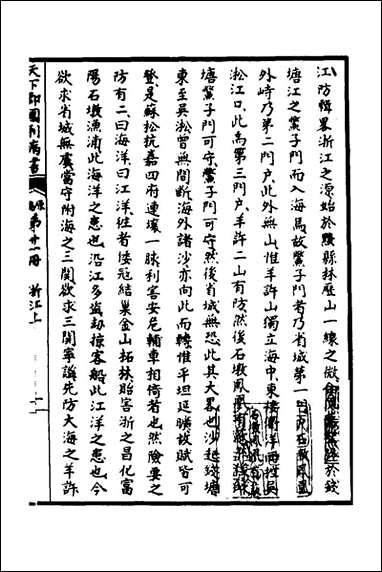 江防輯畧浙江之源始於黟縣林歷山一線之微
於錢
塘江之鱉子門而入海焉故鱉子門者乃省城第一
外峙乃第二門戶此外無山惟羊許山獨立海中東接衢洋西控吳
淞江口此為第三門戶羊許二山有防然後石墩鳳凰
塘鱉子門可守鱉子門可守然後省城無恐此其大畧也沙起錢塘
東至吳淞曾無間斷海外諸沙亦向此而轉惟平坦延曠故賊皆可
登是蘇松抗嘉四府連壤一脉利害安危輔車相倚者也然險要之
防有二曰海洋曰江洋徃者倭冦結巢金山柘林貽害浙之昌化富
陽石墩漁浦此海洋之患也沿江多盗刼掠客船此江洋之患也今
欲求省城無虞當守附海之三関欲求三関寧謐先防大海之羊許
天下郡國利病書
第廿一冊
浙江上